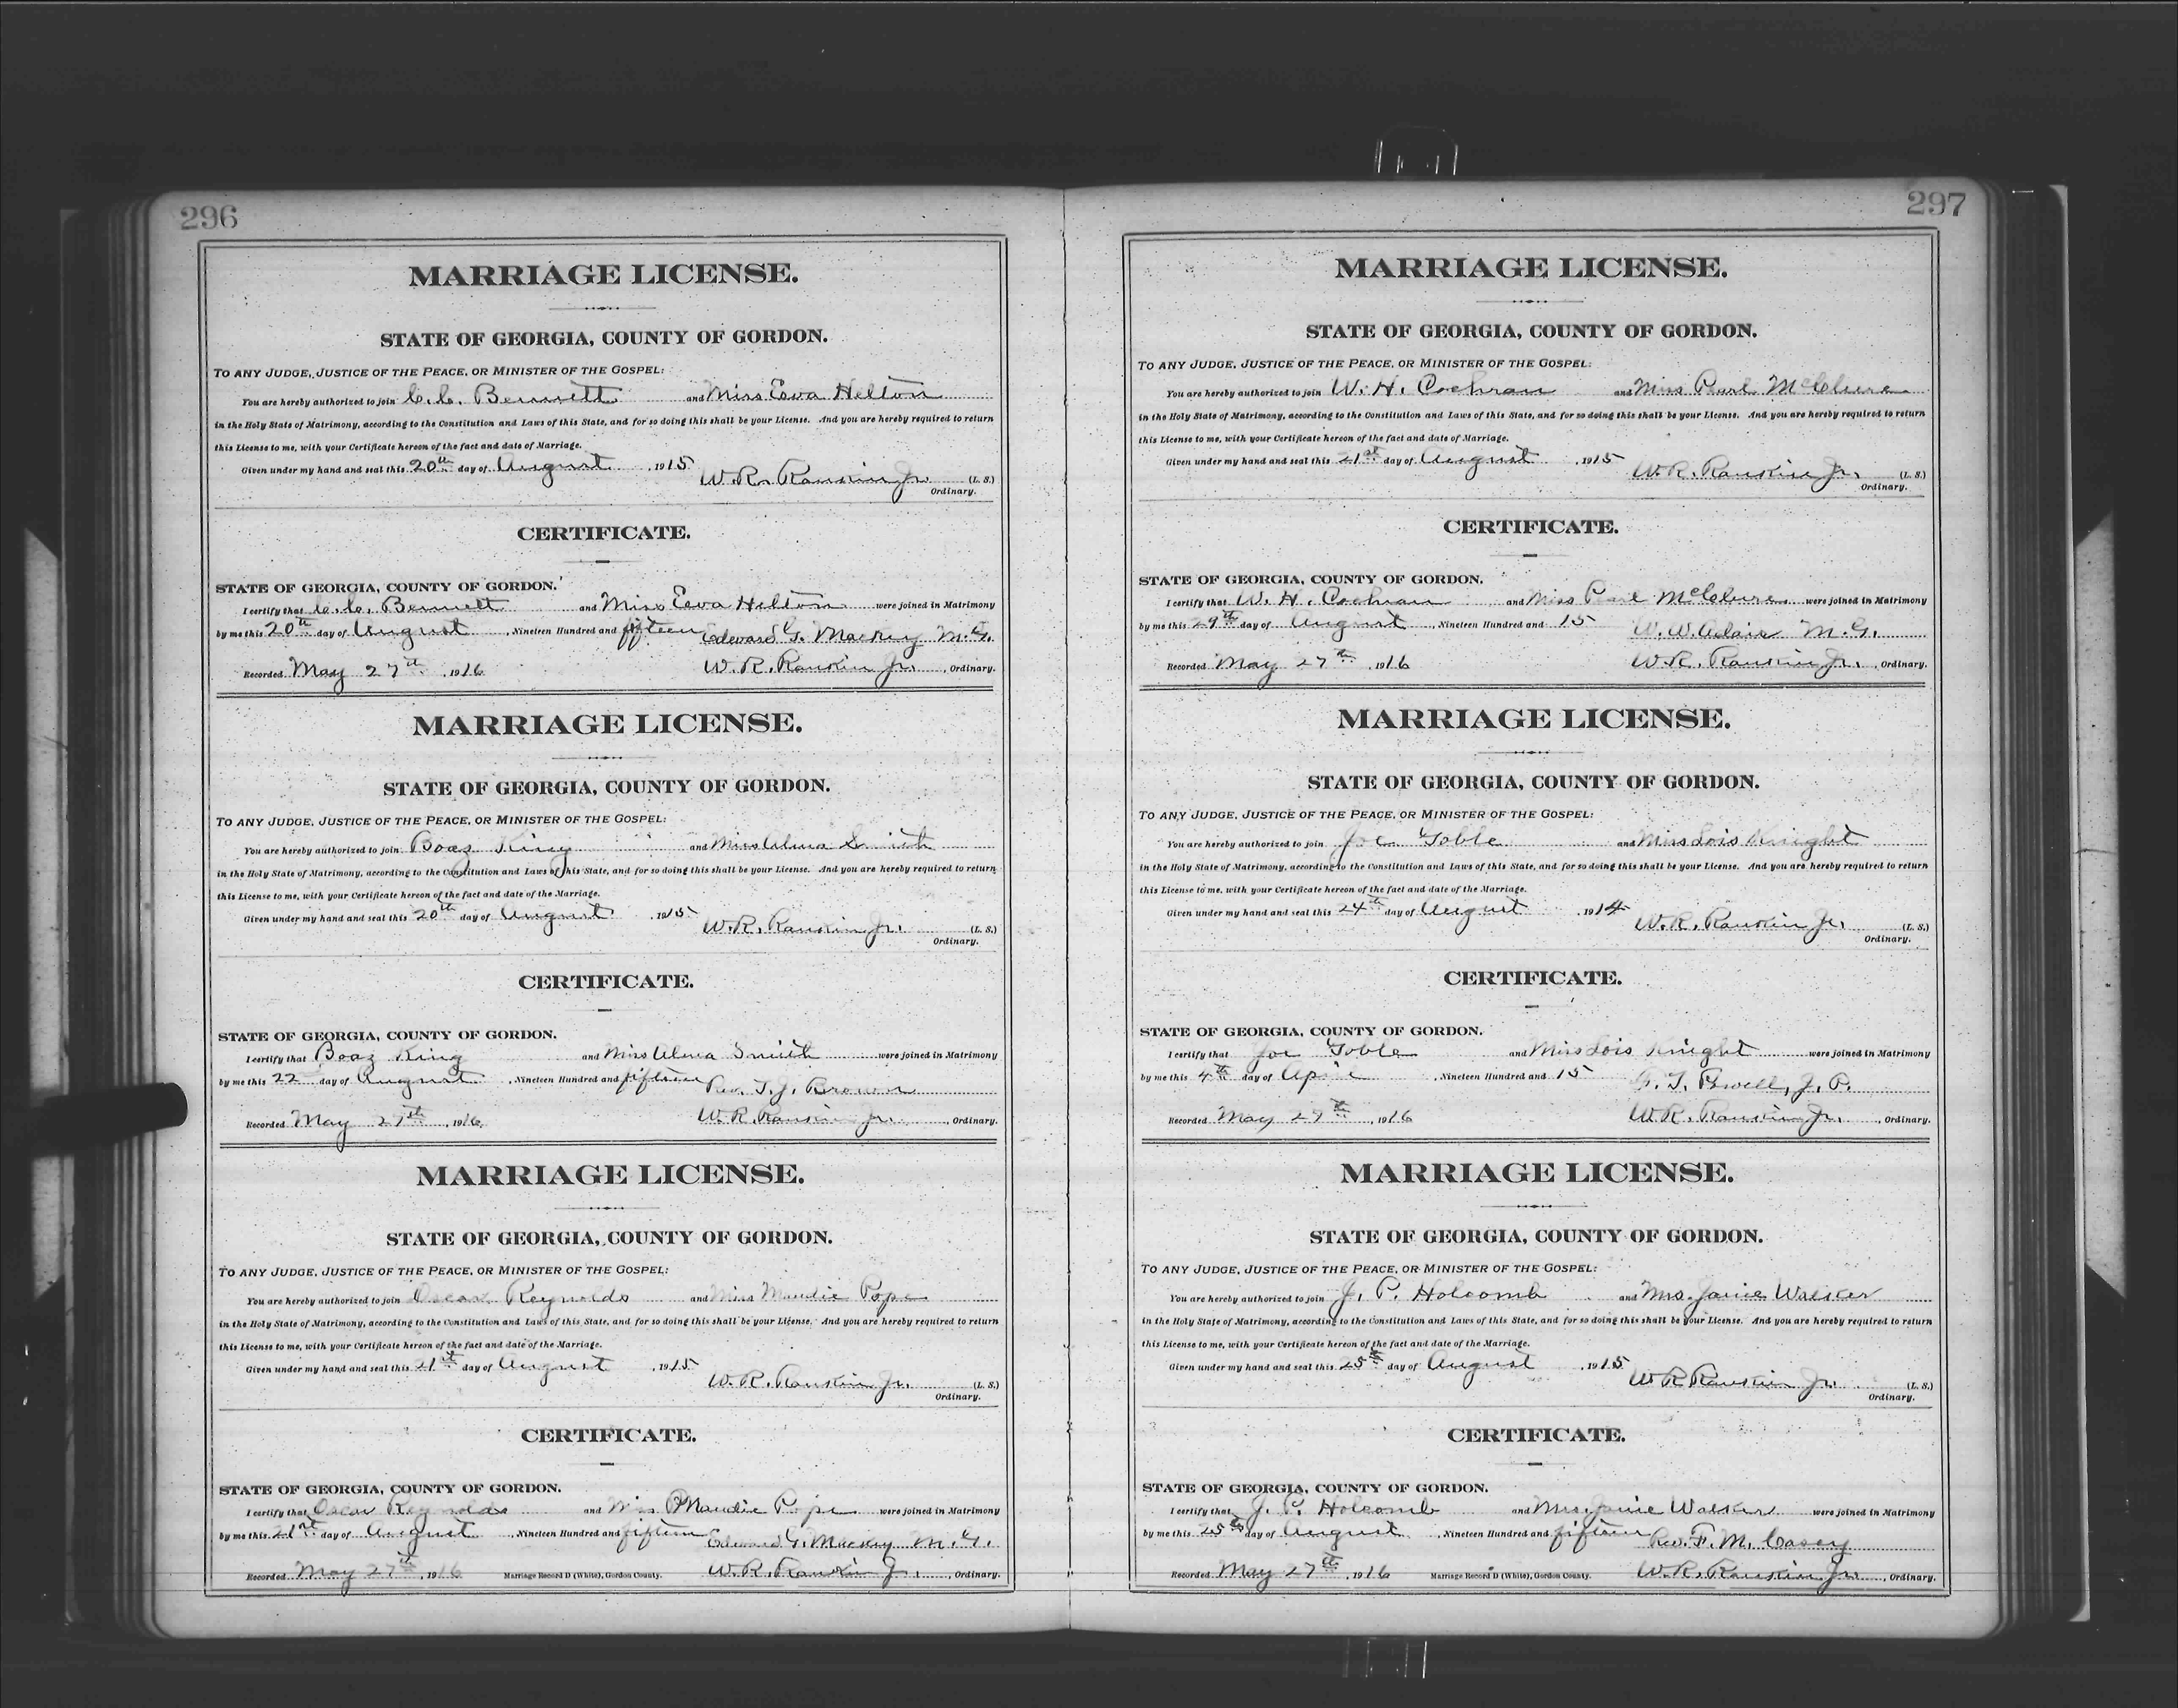 296
MARRIAGE LICENSE.
STATE OF GEORGIA, COUNTY OF GORDON.
TO ANY JUDGE, JUSTICE OF THE PEACE, OR MINISTER OF THE GOSPEL:
You are hereby authorized to join C. C. Bennett and Miss Eva Helton
in the Holy State of Matrimony, according to the Constitution and Laws of this State, and for so doing this shall be your License. And you are hereby required to return
this License to me, with your Certificate hereon of the fact and date of Marriage.
Given under my hand and seal this 20th day of August, 1915 W. R. Rankin Jr. (L. S.)
Ordinary.
CERTIFICATE.
STATE OF GEORGIA, COUNTY OF GORDON.
I certify that C. C. Bennett and Miss Eva Helton were joined in Matrimony
by me this 20th day of August, Nineteen Hundred and fifteen Edward G. Mackey M. G.
Recorded May 27th, 1916 W. R. Rankin Jr., Ordinary.
MARRIAGE LICENSE.
STATE OF GEORGIA, COUNTY OF GORDON.
TO ANY JUDGE, JUSTICE OF THE PEACE, OR MINISTER OF THE GOSPEL:
You are hereby authorized to join Boaz King and Miss Alma Smith
in the Holy State of Matrimony, according to the Constitution and Laws of this State, and for so doing this shall be your License. And you are hereby required to return
this License to me, with your Certificate hereon of the fact and date of the Marriage.
Given under my hand and seal this 20th day of August, 1915 W. R. Rankin Jr. (L. S.)
Ordinary.
CERTIFICATE.
STATE OF GEORGIA, COUNTY OF GORDON.
I certify that Boaz King and Miss Alma Smith were joined in Matrimony
by me this 22 day of August, Nineteen Hundred and fifteen Rev. T. J. Brown
Recorded May 27th, 1916. W. R. Rankin Jr., Ordinary.
MARRIAGE LICENSE.
STATE OF GEORGIA, COUNTY OF GORDON.
TO ANY JUDGE, JUSTICE OF THE PEACE, OR MINISTER OF THE GOSPEL:
You are hereby authorized to join Oscar Reynolds and Miss Maudie Pope
in the Holy State of Matrimony, according to the Constitution and Laws of this State, and for so doing this shall be your License. And you are hereby required to return
this License to me, with your Certificate hereon of the fact and date of the Marriage.
Given under my hand and seal this 21st day of August, 1915 W. R. Rankin Jr. (L. S.)
Ordinary.
CERTIFICATE.
STATE OF GEORGIA, COUNTY OF GORDON.
I certify that Oscar Reynolds and Miss Maudie Pope were joined in Matrimony
by me this 21st day of August, Nineteen Hundred and fifteen Edward G. Mackey M. G.
Recorded May 27th, 1916 Marriage Record D (White), Gordon County. W. R. Rankin J., Ordinary.
297
MARRIAGE LICENSE.
STATE OF GEORGIA, COUNTY OF GORDON.
TO ANY JUDGE, JUSTICE OF THE PEACE, OR MINISTER OF THE GOSPEL:
You are hereby authorized to join W. H. Cochran and Miss Pearl McClure
in the Holy State of Matrimony, according to the Constitution and Laws of this State, and for so doing this shall be your License. And you are hereby required to return
this License to me, with your Certificate hereon of the fact and date of Marriage.
Given under my hand and seal this 21st day of August, 1915 W. R. Rankin Jr. (L. S.)
Ordinary.
CERTIFICATE.
STATE OF GEORGIA, COUNTY OF GORDON.
I certify that W. H. Cochran and Miss Pearl McClure were joined in Matrimony
by me this 29th day of August, Nineteen Hundred and 15 W. W. Adair M. G.
Recorded May 27th, 1916 W. R. Rankin Jr., Ordinary.
MARRIAGE LICENSE.
STATE OF GEORGIA, COUNTY OF GORDON.
TO ANY JUDGE, JUSTICE OF THE PEACE, OR MINISTER OF THE GOSPEL:
You are hereby authorized to join Joe Goble and Miss Lois Knight
in the Holy State of Matrimony, according to the Constitution and Laws of this State, and for so doing this shall be your License. And you are hereby required to return
this License to me, with your Certificate hereon of the fact and date of the Marriage.
Given under my hand and seal this 24th day of August, 1914 W. R. Rankin Jr. (L. S.)
Ordinary.
CERTIFICATE.
STATE OF GEORGIA, COUNTY OF GORDON.
I certify that Joe Goble and Miss Lois Knight were joined in Matrimony
by me this 4th day of April, Nineteen Hundred and 15 T. Powell, J. P.
Recorded May 27th, 1916 W. R. Rankin Jr., Ordinary.
MARRIAGE LICENSE.
STATE OF GEORGIA, COUNTY OF GORDON.
TO ANY JUDGE, JUSTICE OF THE PEACE, OR MINISTER OF THE GOSPEL:
You are hereby authorized to join J. P. Holcomb and Mrs. Janie Walker
in the Holy State of Matrimony, according to the Constitution and Laws of this State, and for so doing this shall be your License. And you are hereby required to return
this License to me, with your Certificate hereon of the fact and date of the Marriage.
Given under my hand and seal this 25th day of August, 1915 W. R. Rankin Jr. (L. S.)
Ordinary.
CERTIFICATE.
STATE OF GEORGIA, COUNTY OF GORDON.
I certify that J. P. Holcomb and Mrs. Janie Walker were joined in Matrimony
by me this 25th day of August, Nineteen Hundred and fifteen Rev. F. M. Casey
Recorded May 27th, 1916 Marriage Record D (White), Gordon County. W. R. Rankin Jr., Ordinary.